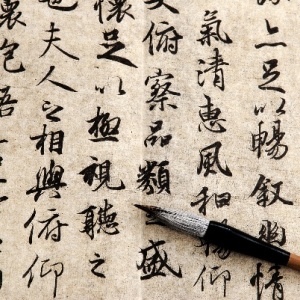 亦足以暢叙幽情
氣清惠風和暢仰
大俯察品類之盛
懷足以極視聽之
也夫人之相與俯仰
懷抱悟言